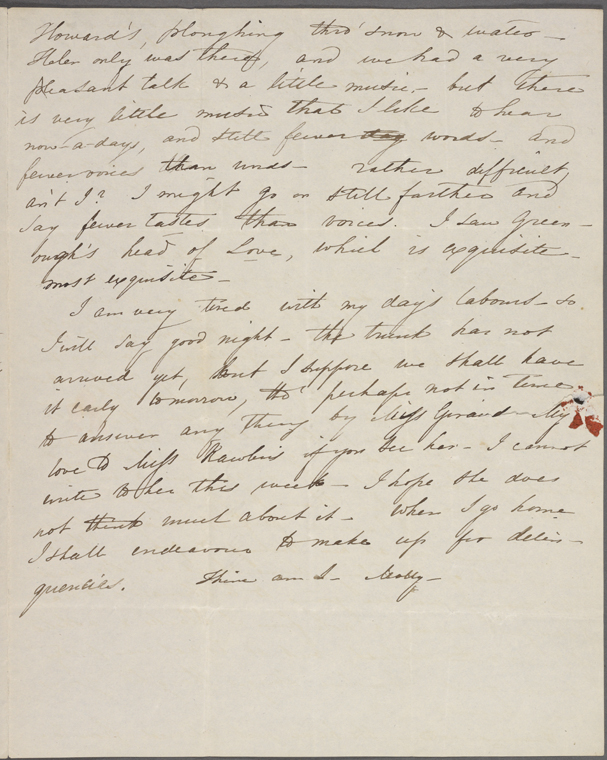 Howard's, ploughing thro' snow & water –
Helen only was there, and we had a very
pleasant talk & a little music – but there
is very little music that I like to hear
now-a-days, and still fewer words – and
fewer voices than words – rather difficult,
ain't I? I might go on still farther and
say fewer tastes than voices. I saw Green-
ough's head of Love, which is exquisite –
most exquisite –
I am very tired with my day's labours – so
I will say good night – the trunk has not
arrived yet, but I suppose we shall have
it early tomorrow, tho' perhaps not in time
to answer any thing by Miss Giraud – My
love to Miss Rawlins if you see her – I cannot
write to her this week – I hope she does
not think much about it – When I go home
I shall endeavour to make up for delin-
quencies. Thine am I – Molly –